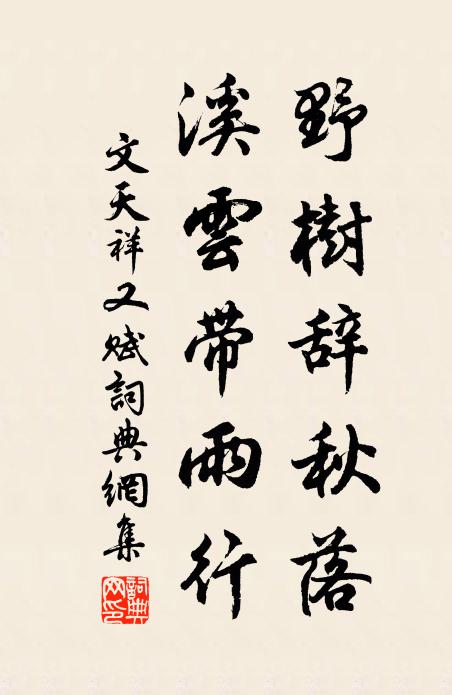 野樹辞秋落
溪雲帶雨行
文天祥又賦詞典網集
詞典網印